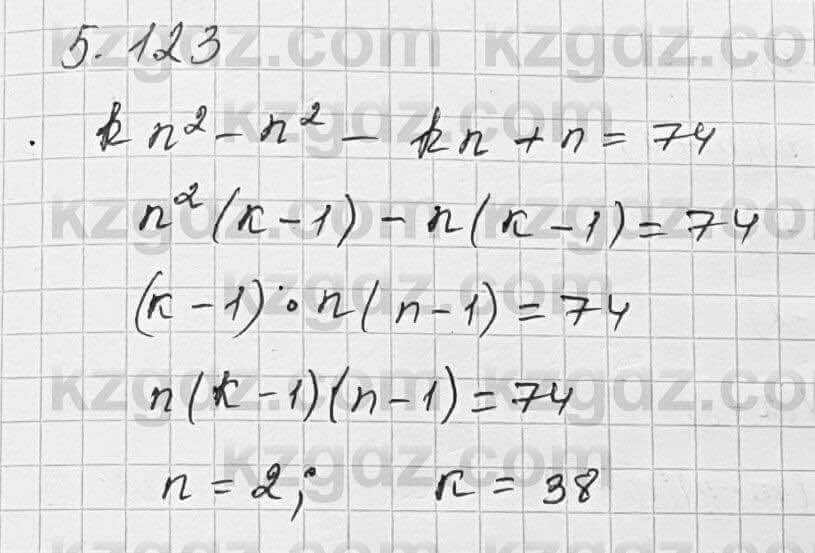 5.123
kn² - n² - kn + n = 74
n²(k-1) - n(k-1) = 74
(k-1)·n(n-1) = 74
n(k-1)(n-1) = 74
n = 2; k = 38
kzgdz.com kzgdz.com
kzgdz.com
kzgdz.com kzgdz.com
kzgdz.com
kzgdz.com kzgdz.com
kzgdz.com